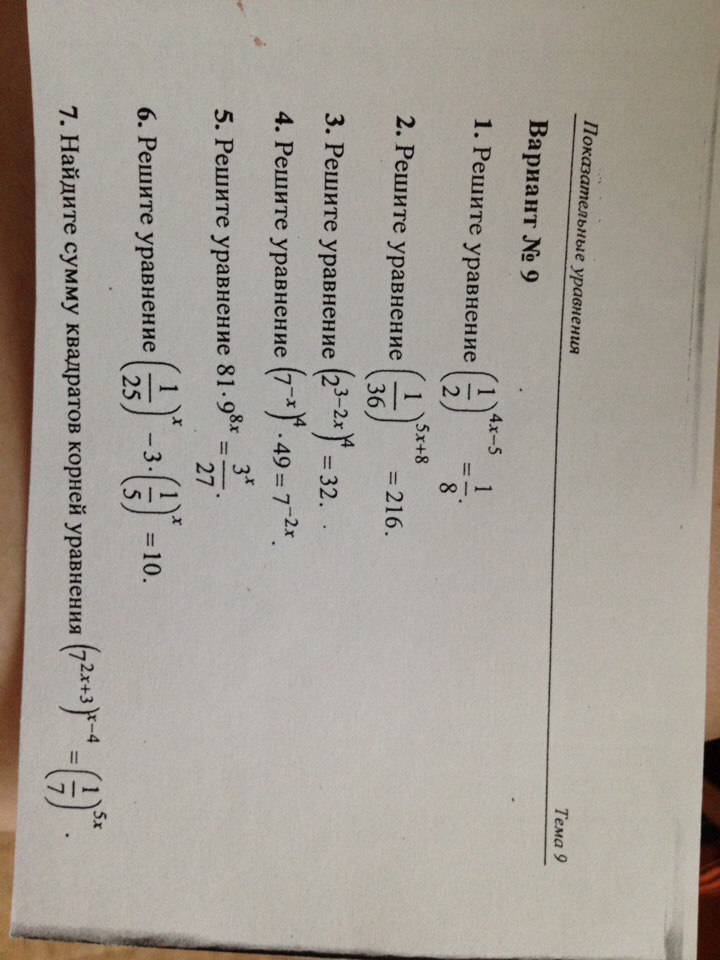 Показательные уравнения Тема 9
Вариант № 9
1. Решите уравнение (1/2)^(4x−5) = 1/8.
2. Решите уравнение (1/36)^(5x+8) = 216.
3. Решите уравнение (2^(3−2x))^4 = 32.
4. Решите уравнение (7^(−x))^4 · 49 = 7^(−2x).
5. Решите уравнение 81 · 9^(8x) = 3^x/27.
6. Решите уравнение (1/25)^x − 3 · (1/5)^x = 10.
7. Найдите сумму квадратов корней уравнения (7^(2x+3))^(x−4) = (1/7)^(5x).